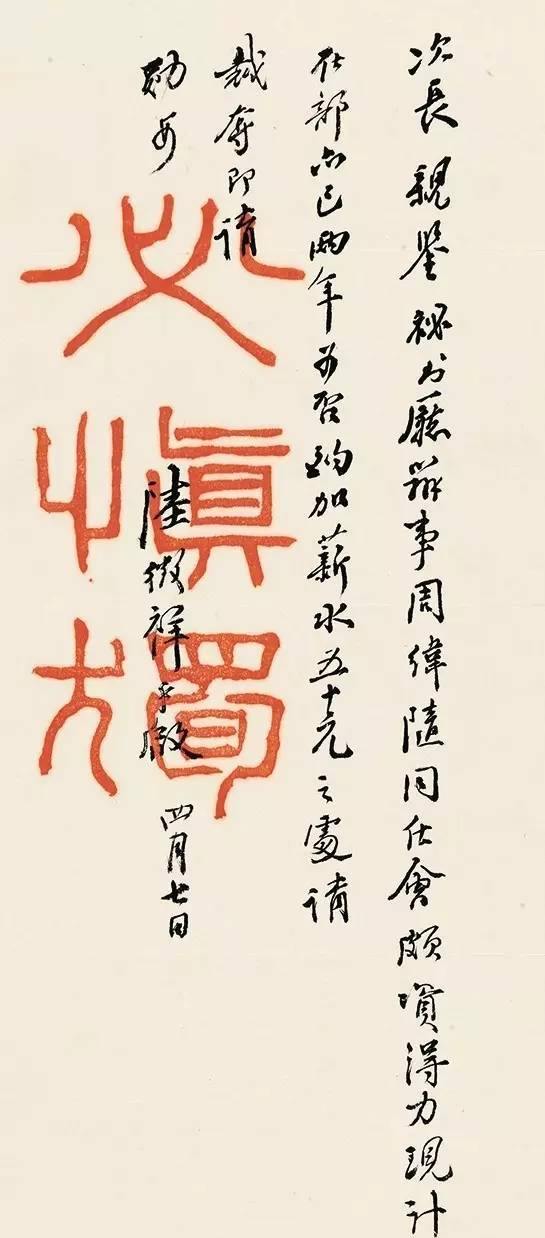 次長親鑒祕書廳辦事周緯隨同在會頗資得力現計
在部亦已兩年可否酌加薪水五十元之處請
裁奪即請
勛安
陸徵祥手啟 四月廿日
必慎獨